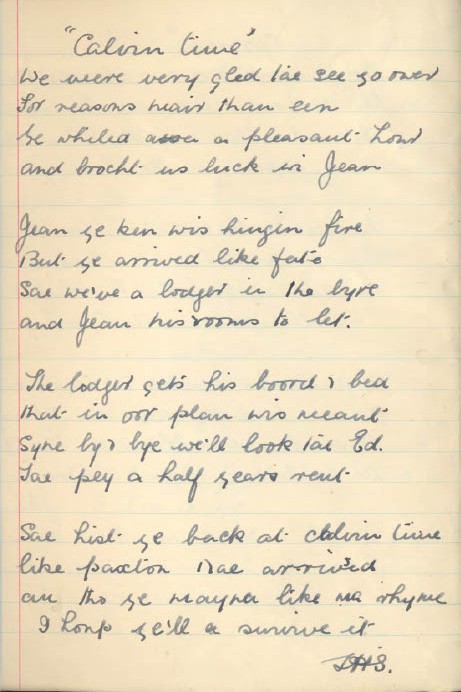 "Calvin time"
We were very gled tae see yo ower
For reasons mair than een
Ye whiled awa a pleasant hour
and brocht us luck wi Jean
Jean ye ken wis hingin fire
But ye arrived like fate
Sae we've a lodger in the byre
and Jean his rooms to let.
The lodger gets his boord & bed
that in oor plan wis meant
Syne by & bye we'll look tae Ed.
Tae pey a half years rent
Sae hist ye back at calvin time
like paxton tae arrived
an tho ye mayna like ma rhyme
I hope ye'll a survive it